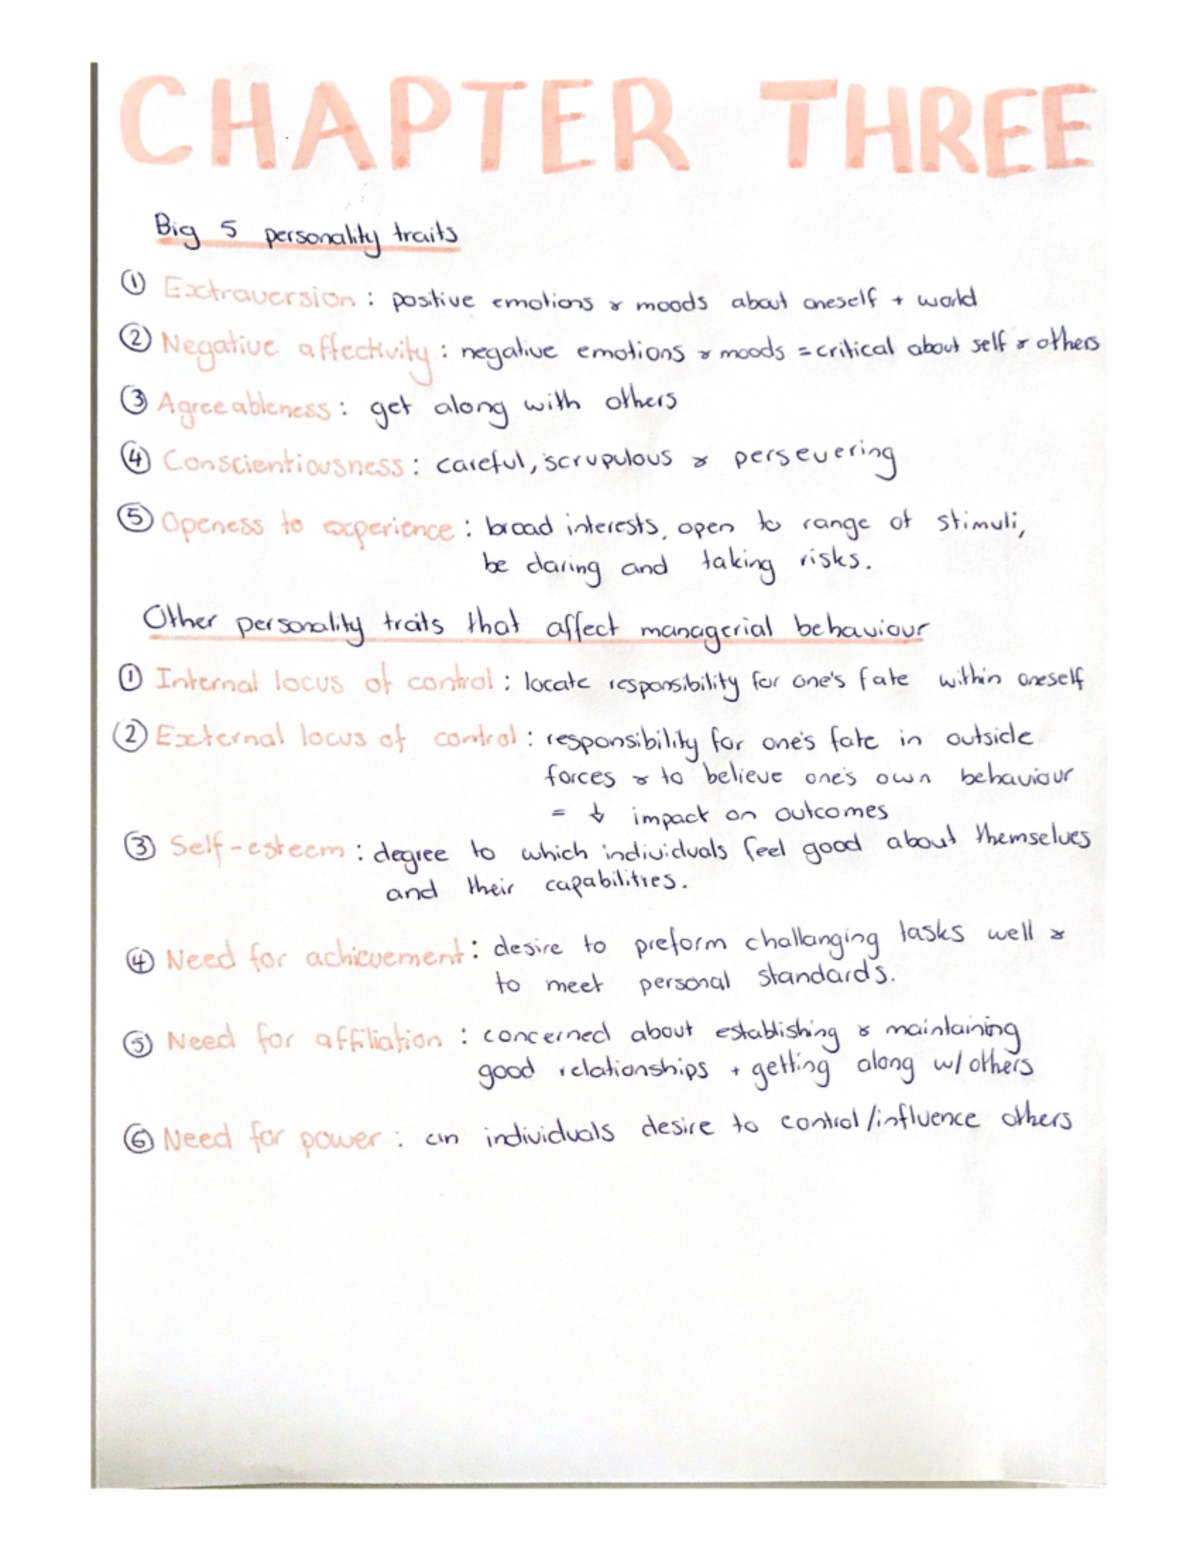 CHAPTER THREE
Big 5 personality traits
① Extraversion : positive emotions & moods about oneself + world
② Negative affectivity : negative emotions & moods = critical about self & others
③ Agreeableness : get along with others
④ Conscientiousness : careful, scrupulous & persevering
⑤ Openess to experience : broad interests, open to range of stimuli,
be daring and taking risks.
Other personality traits that affect managerial behaviour
① Internal locus of control : locate responsibility for one's fate within oneself
② External locus of control : responsibility for one's fate in outside
forces & to believe one's own behaviour
= ↓ impact on outcomes
③ Self-esteem : degree to which individuals feel good about themselves
and their capabilities.
④ Need for achievement : desire to preform challanging tasks well &
to meet personal standards.
⑤ Need for affiliation : concerned about establishing & maintaining
good relationships + getting along w/ others
⑥ Need for power : an individuals desire to control/influence others